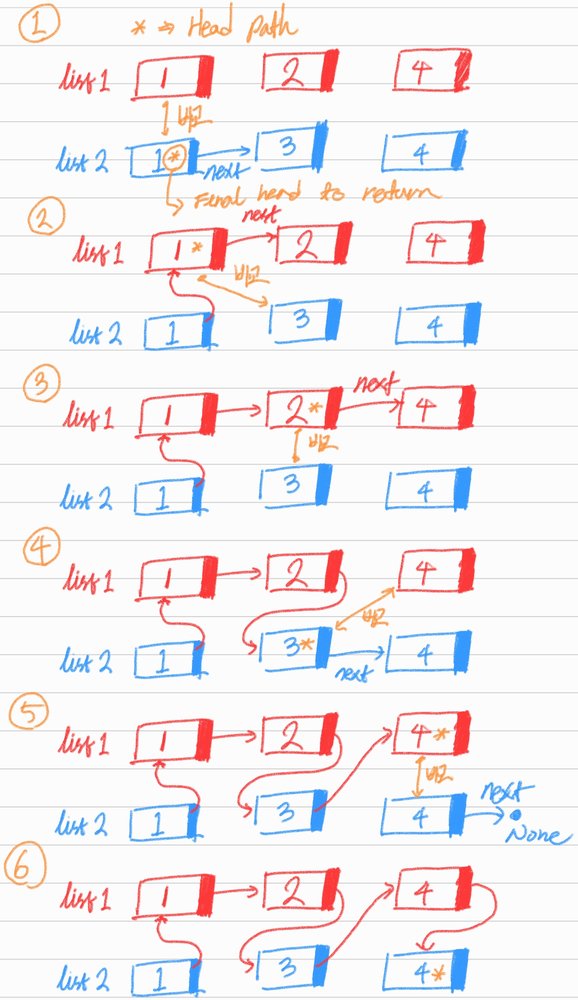 ① * ⇒ Head Path
list 1 1 2 4
비교
list 2 1* next 3 4
Final head to return
② next
list 1 1* 2 4
비교
list 2 1 3 4
③ next
list 1 1 2* 4
비교
list 2 1 3 4
④
list 1 1 2 4
비교
list 2 1 3* 4
next
⑤
list 1 1 2 4*
비교 next
list 2 1 3 4 None
⑥
list 1 1 2 4
list 2 1 3 4*